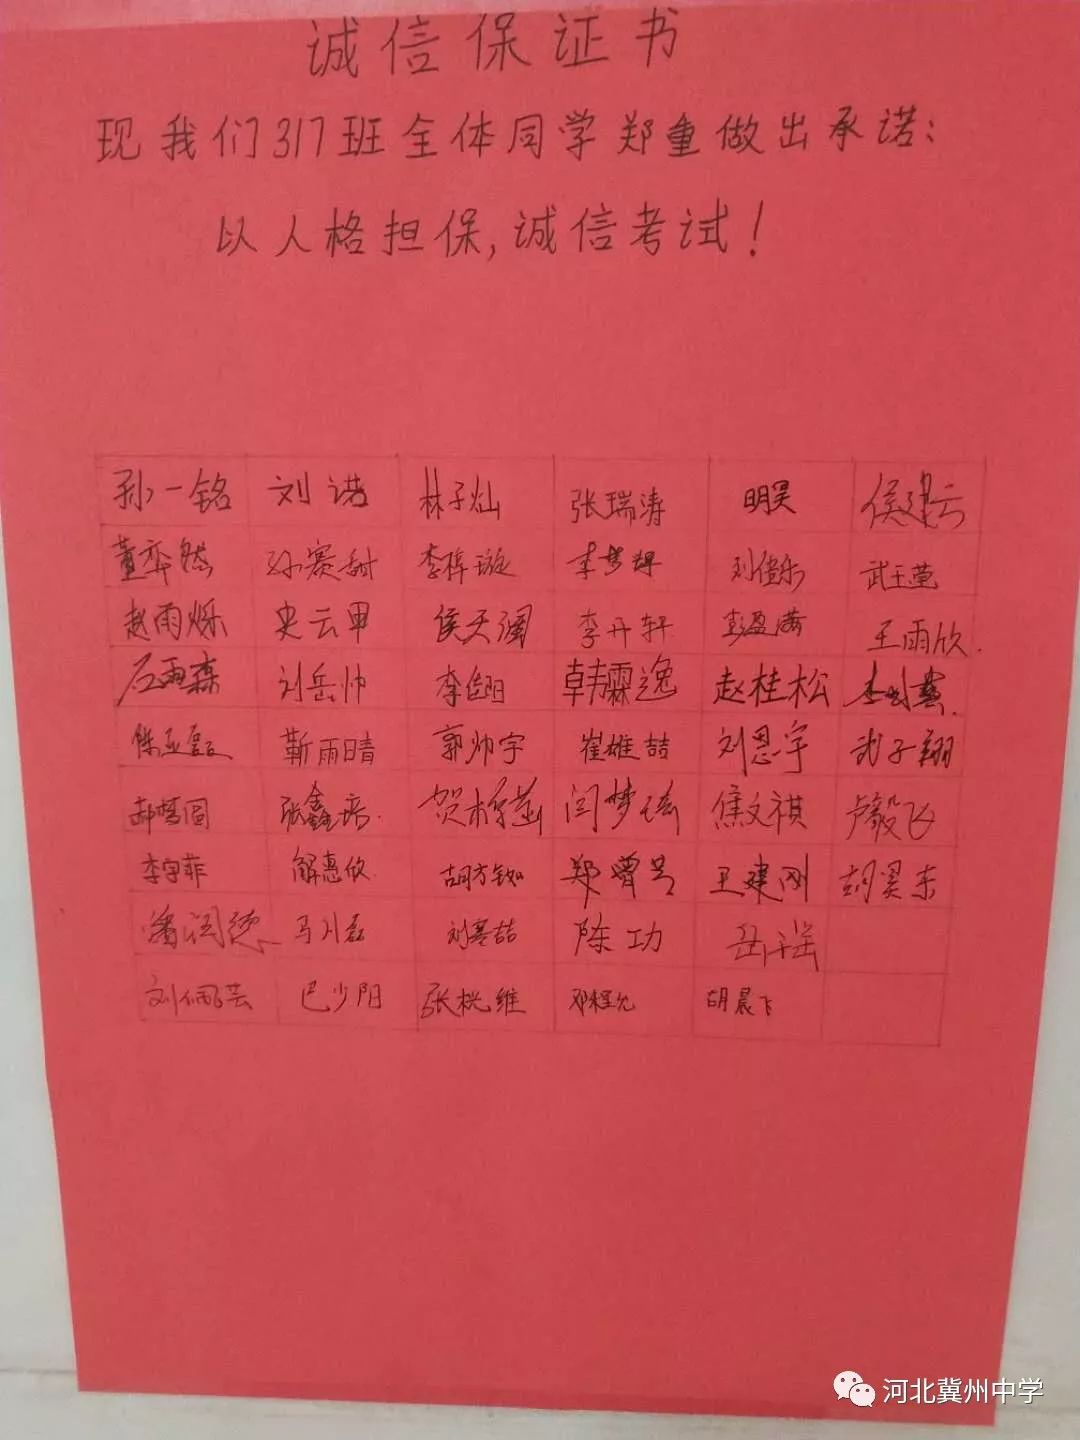 诚信保证书
现我们317班全体同学郑重做出承诺：
以人格担保,诚信考试！
孙一铭 刘诺 林子灿 张瑞涛 明昊 侯建云
董奕然 孙赛甜 李梓璇 李梦辉 刘俊乐 武玉莹
赵雨烁 史云甲 侯天阔 李丹轩 彭盈满 王雨欣.
石雨森 刘岳帅 李俊阳 韩霖逸 赵桂松
陈亚磊 靳雨晴 郭帅宇 崔雄喆 刘恩宇 武子翔
郝梦圆 张鑫 闫梦琦 焦文祺 卢毅飞
李宇菲 解惠欣 胡方钗 王建刚 胡昊东
潘润德 马川磊 刘赛喆 陈功
刘佩芸 巴少阳 张桄维 邓程允 胡晨飞
河北冀州中学